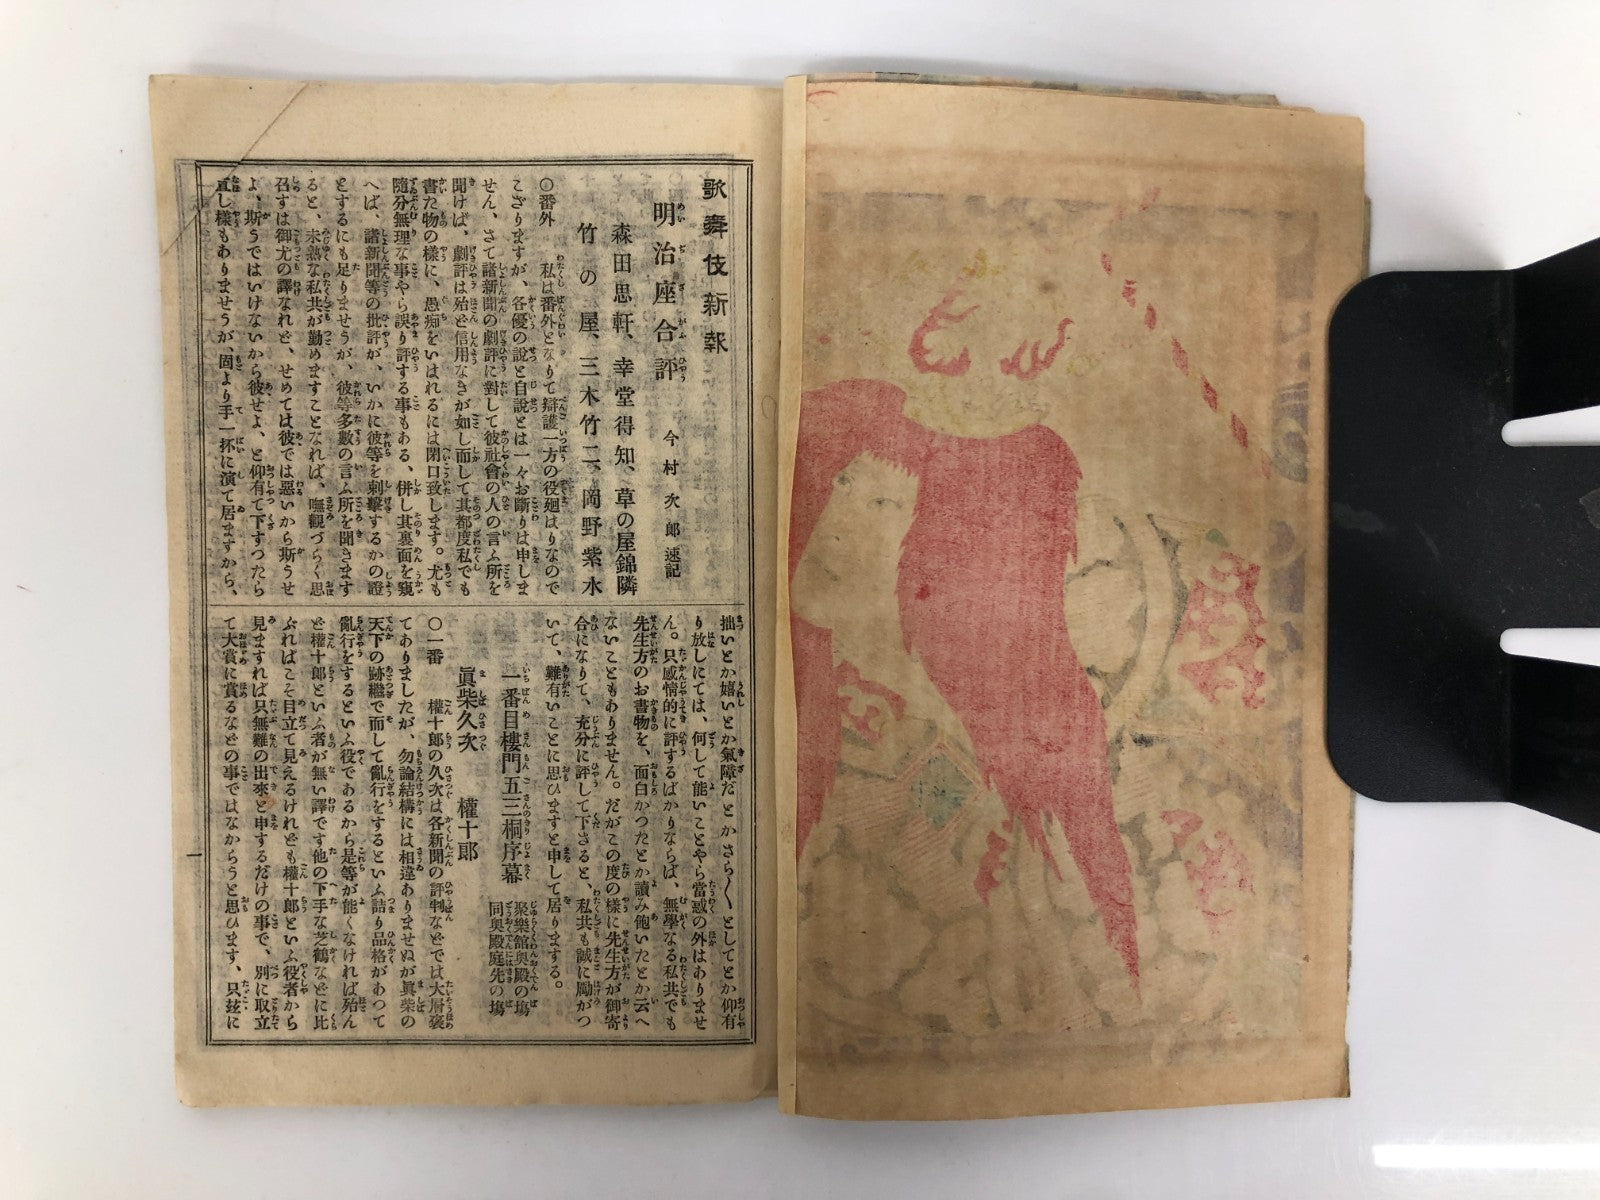 歌舞伎新報
明治座合評　今村次郎速記
森田思軒、幸堂得知、草の屋錦隣
竹の屋、三木竹二、岡野紫水
〇番外　私は番外となりて辯護一方の役廻はりなので
ござりますが、各優の説と自説とは一々お斷りは申しま
せん、さて諸新聞の劇評に對して彼社會の人の言ふ所を
聞けば、劇評は殆ど信用なきが如し而して其都度私でも
書た物の樣に、愚痴をいはれるには閉口致します。尤も
隨分無理な事やら誤り評する事もある、併し其裏面を窺
へば、諸新聞等の批評が、いかに彼等を刺撃するかの證
とするにも足りませうが、彼等多數の言ふ所を聞きます
ると、未熟な私共が勤めますことなれば、嘸觀づらく思
召すは御尤の譯なれど、せめては彼では惡いから斯うせ
よ、斯うではいけないから彼せよ、と仰有て下すつたら
直し樣もありませうが、固より手一杯に演て居ますから、
拙いとか嬉いとか氣障だとかさら〳〵としてとか仰有
り放しにては、何して能いことやら當惑の外はありませ
ん。只感情的に評するばかりならば、無學なる私共でも
先生方のお書物を、面白かつたとか讀み飽いたとか云へ
ないこともありません。だがこの度の樣に先生方が御寄
合になりて、充分に評して下さると、私共も誠に勵がつ
いて、難有いことに思ひますと申して居りまする。
一番目樓門五三桐序幕　聚樂館奧殿の塲
同奧殿庭先の塲
眞柴久次　權十郎
〇一番　權十郎の久次は各新聞の評判などでは大層褒
てありましたが、勿論結構には相違ありませぬが眞柴の
天下の跡繼で而して亂行をするといふ詰り品格があつて
亂行をするといふ役であるから是等が能くなければ殆ん
ど權十郎といふ者が無い譯です他の下手な芝鶴などに比
ぶればこそ目立て見えるけれども權十郎といふ役者から
見ますれば只無難の出來と申するだけの事で、別に取立
て大賞に賞るなどの事ではなからうと思ひます、只玆に
一